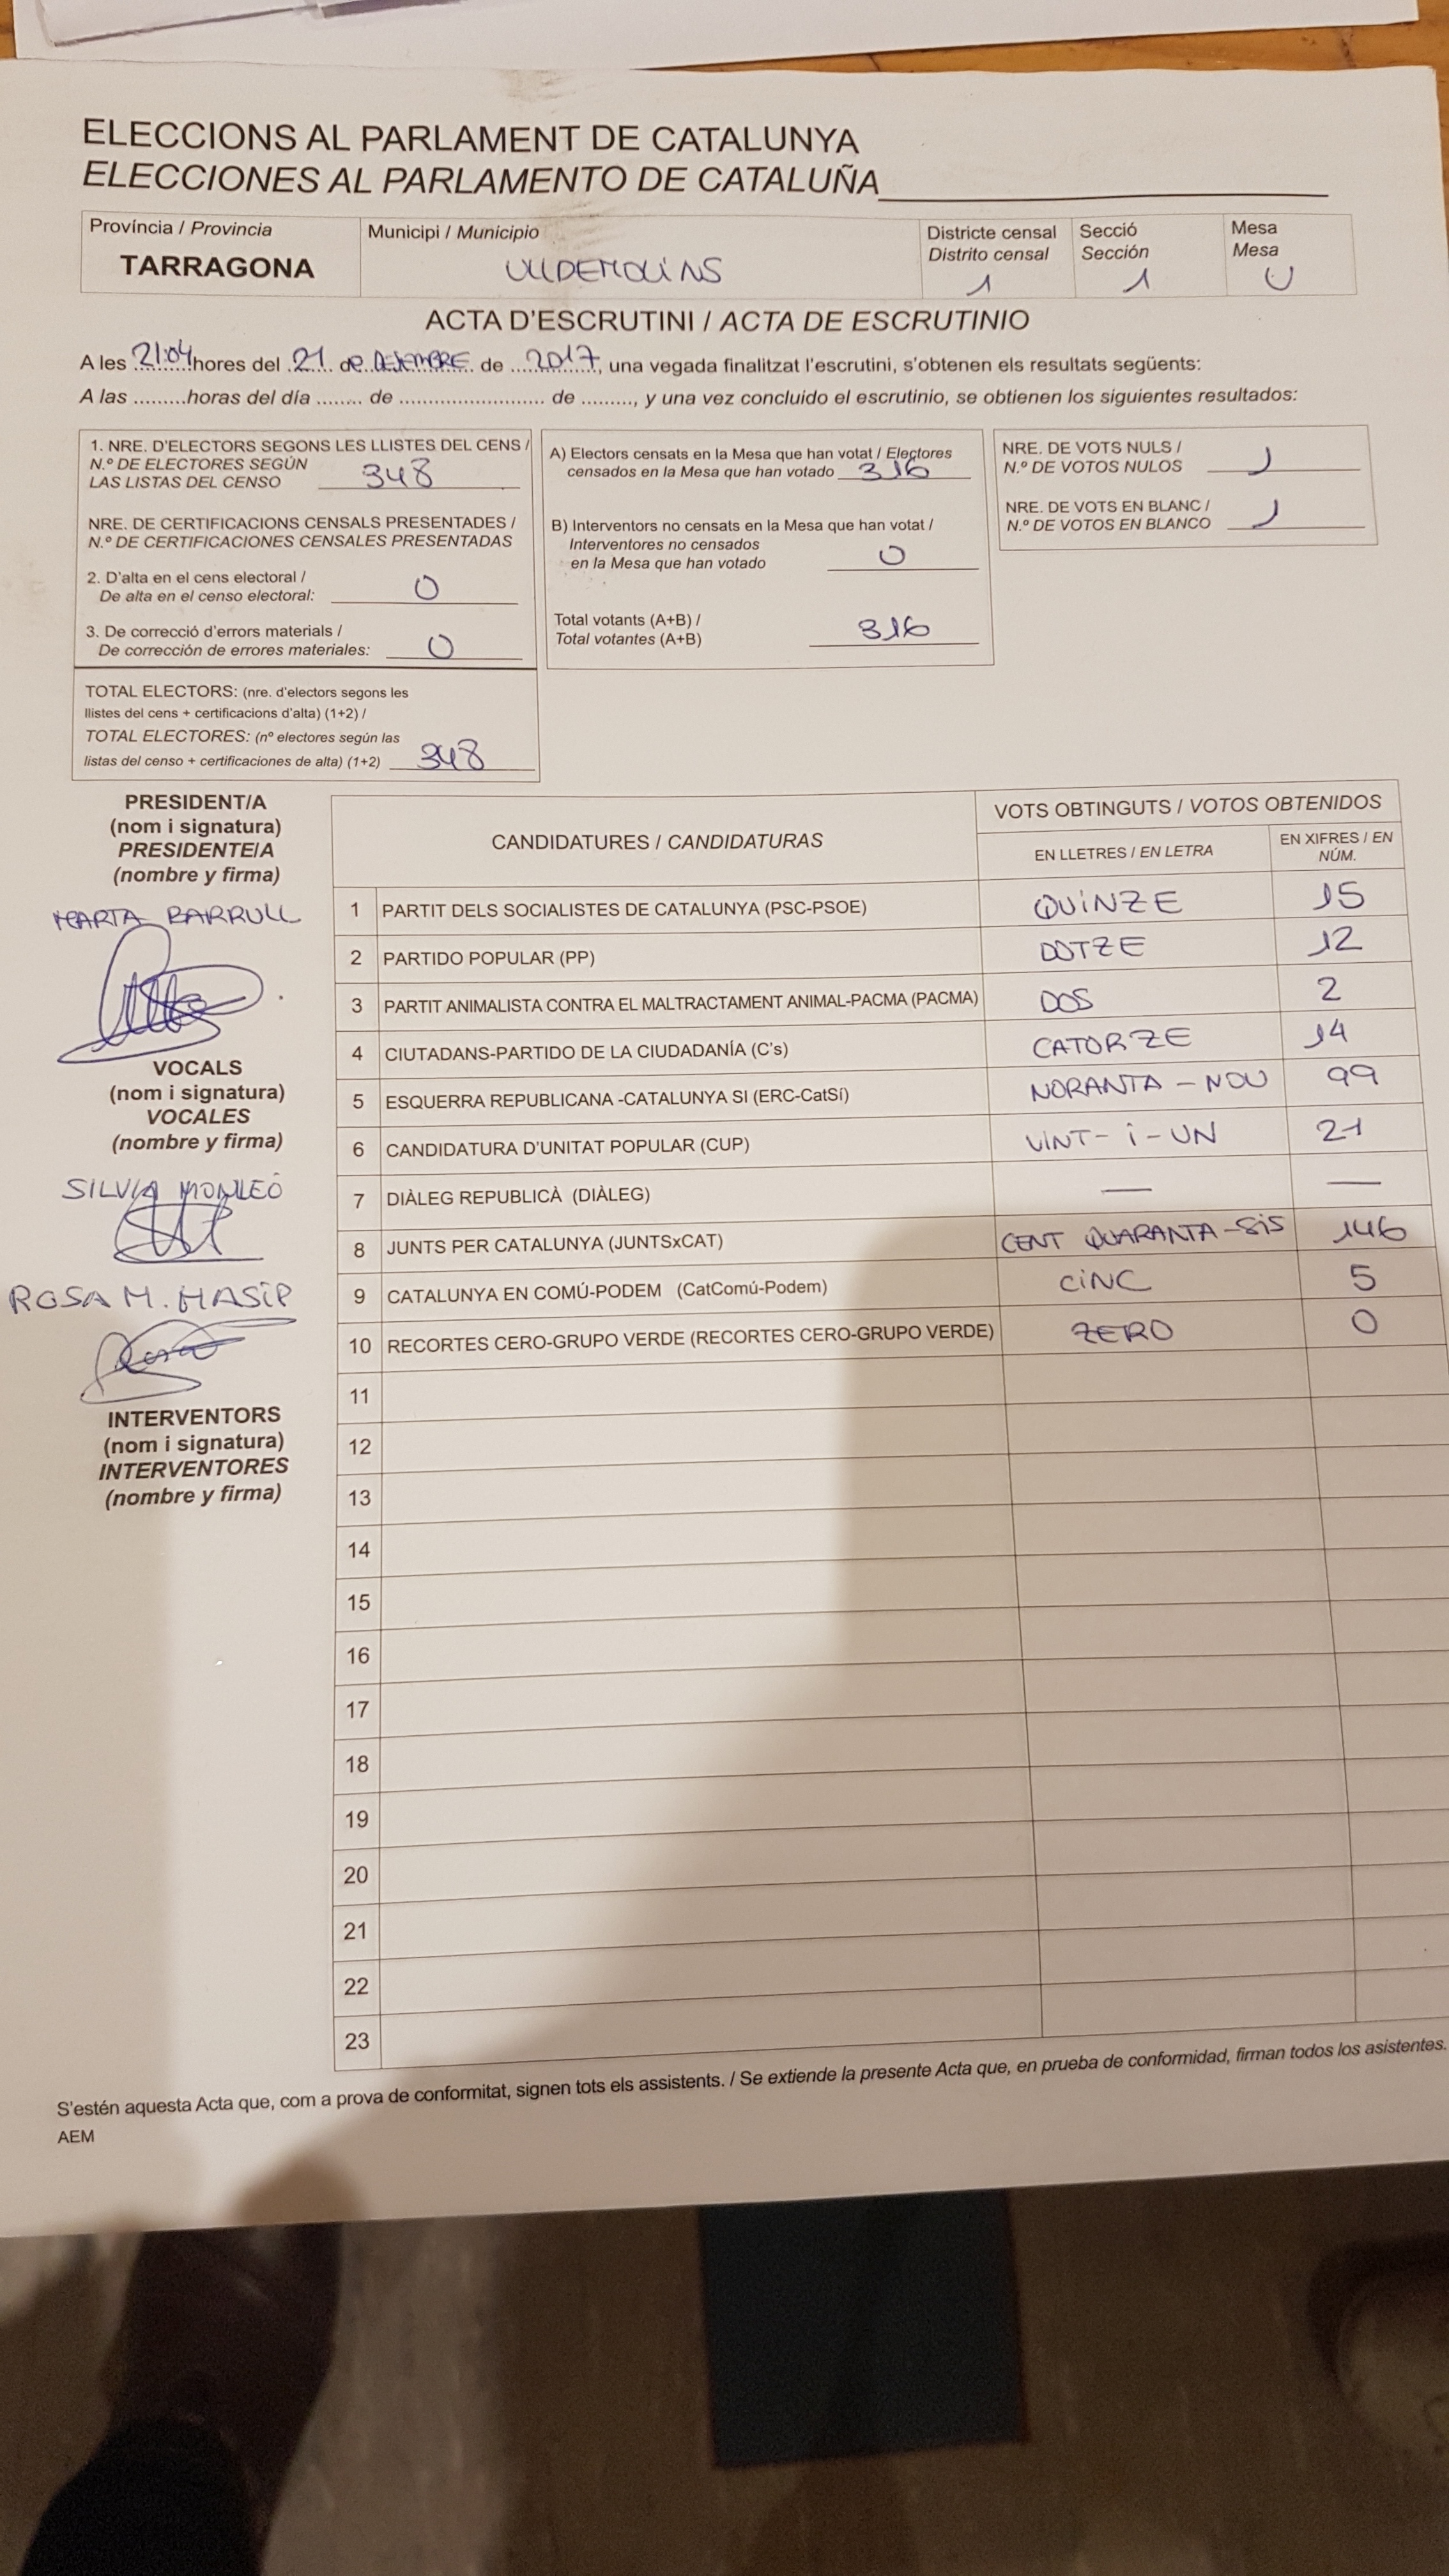 ELECCIONS AL PARLAMENT DE CATALUNYA
ELECCIONES AL PARLAMENTO DE CATALUÑA
Província / Provincia
TARRAGONA
Municipi / Municipio
ULLDEMOLINS
Districte censal
Distrito censal
1
Secció
Sección
1
Mesa
Mesa
U
ACTA D'ESCRUTINI / ACTA DE ESCRUTINIO
A les 21:04 hores del 21 de DESEMBRE de 2017, una vegada finalitzat l'escrutini, s'obtenen els resultats següents:
A las .........horas del día ........ de .......................... de ........., y una vez concluido el escrutinio, se obtienen los siguientes resultados:
1. NRE. D'ELECTORS SEGONS LES LLISTES DEL CENS /
N.º DE ELECTORES SEGÚN
LAS LISTAS DEL CENSO 348
NRE. DE CERTIFICACIONS CENSALS PRESENTADES /
N.º DE CERTIFICACIONES CENSALES PRESENTADAS
2. D'alta en el cens electoral /
De alta en el censo electoral: 0
3. De correcció d'errors materials /
De corrección de errores materiales: 0
TOTAL ELECTORS: (nre. d'electors segons les
llistes del cens + certificacions d'alta) (1+2) /
TOTAL ELECTORES: (nº electores según las
listas del censo + certificaciones de alta) (1+2) 348
A) Electors censats en la Mesa que han votat / Electores
censados en la Mesa que han votado 316
B) Interventors no censats en la Mesa que han votat /
Interventores no censados
en la Mesa que han votado 0
Total votants (A+B) /
Total votantes (A+B) 316
NRE. DE VOTS NULS /
N.º DE VOTOS NULOS 1
NRE. DE VOTS EN BLANC /
N.º DE VOTOS EN BLANCO 1
PRESIDENT/A
(nom i signatura)
PRESIDENTE/A
(nombre y firma)
MARTA BARRULL
VOCALS
(nom i signatura)
VOCALES
(nombre y firma)
SILVIA MONLEÓ
ROSA M. MASIP
INTERVENTORS
(nom i signatura)
INTERVENTORES
(nombre y firma)
CANDIDATURES / CANDIDATURAS
VOTS OBTINGUTS / VOTOS OBTENIDOS
EN LLETRES / EN LETRA
EN XIFRES / EN
NÚM.
1 PARTIT DELS SOCIALISTES DE CATALUNYA (PSC-PSOE) QUINZE 15
2 PARTIDO POPULAR (PP) DOTZE 12
3 PARTIT ANIMALISTA CONTRA EL MALTRACTAMENT ANIMAL-PACMA (PACMA) DOS 2
4 CIUTADANS-PARTIDO DE LA CIUDADANÍA (C's) CATORZE 14
5 ESQUERRA REPUBLICANA -CATALUNYA SI (ERC-CatSí) NORANTA - NOU 99
6 CANDIDATURA D'UNITAT POPULAR (CUP) VINT- i - UN 21
7 DIÀLEG REPUBLICÀ (DIÀLEG) — —
8 JUNTS PER CATALUNYA (JUNTSxCAT) CENT QUARANTA-SIS 146
9 CATALUNYA EN COMÚ-PODEM (CatComú-Podem) CINC 5
10 RECORTES CERO-GRUPO VERDE (RECORTES CERO-GRUPO VERDE) ZERO 0
11
12
13
14
15
16
17
18
19
20
21
22
23
S'estén aquesta Acta que, com a prova de conformitat, signen tots els assistents. / Se extiende la presente Acta que, en prueba de conformidad, firman todos los asistentes.
AEM